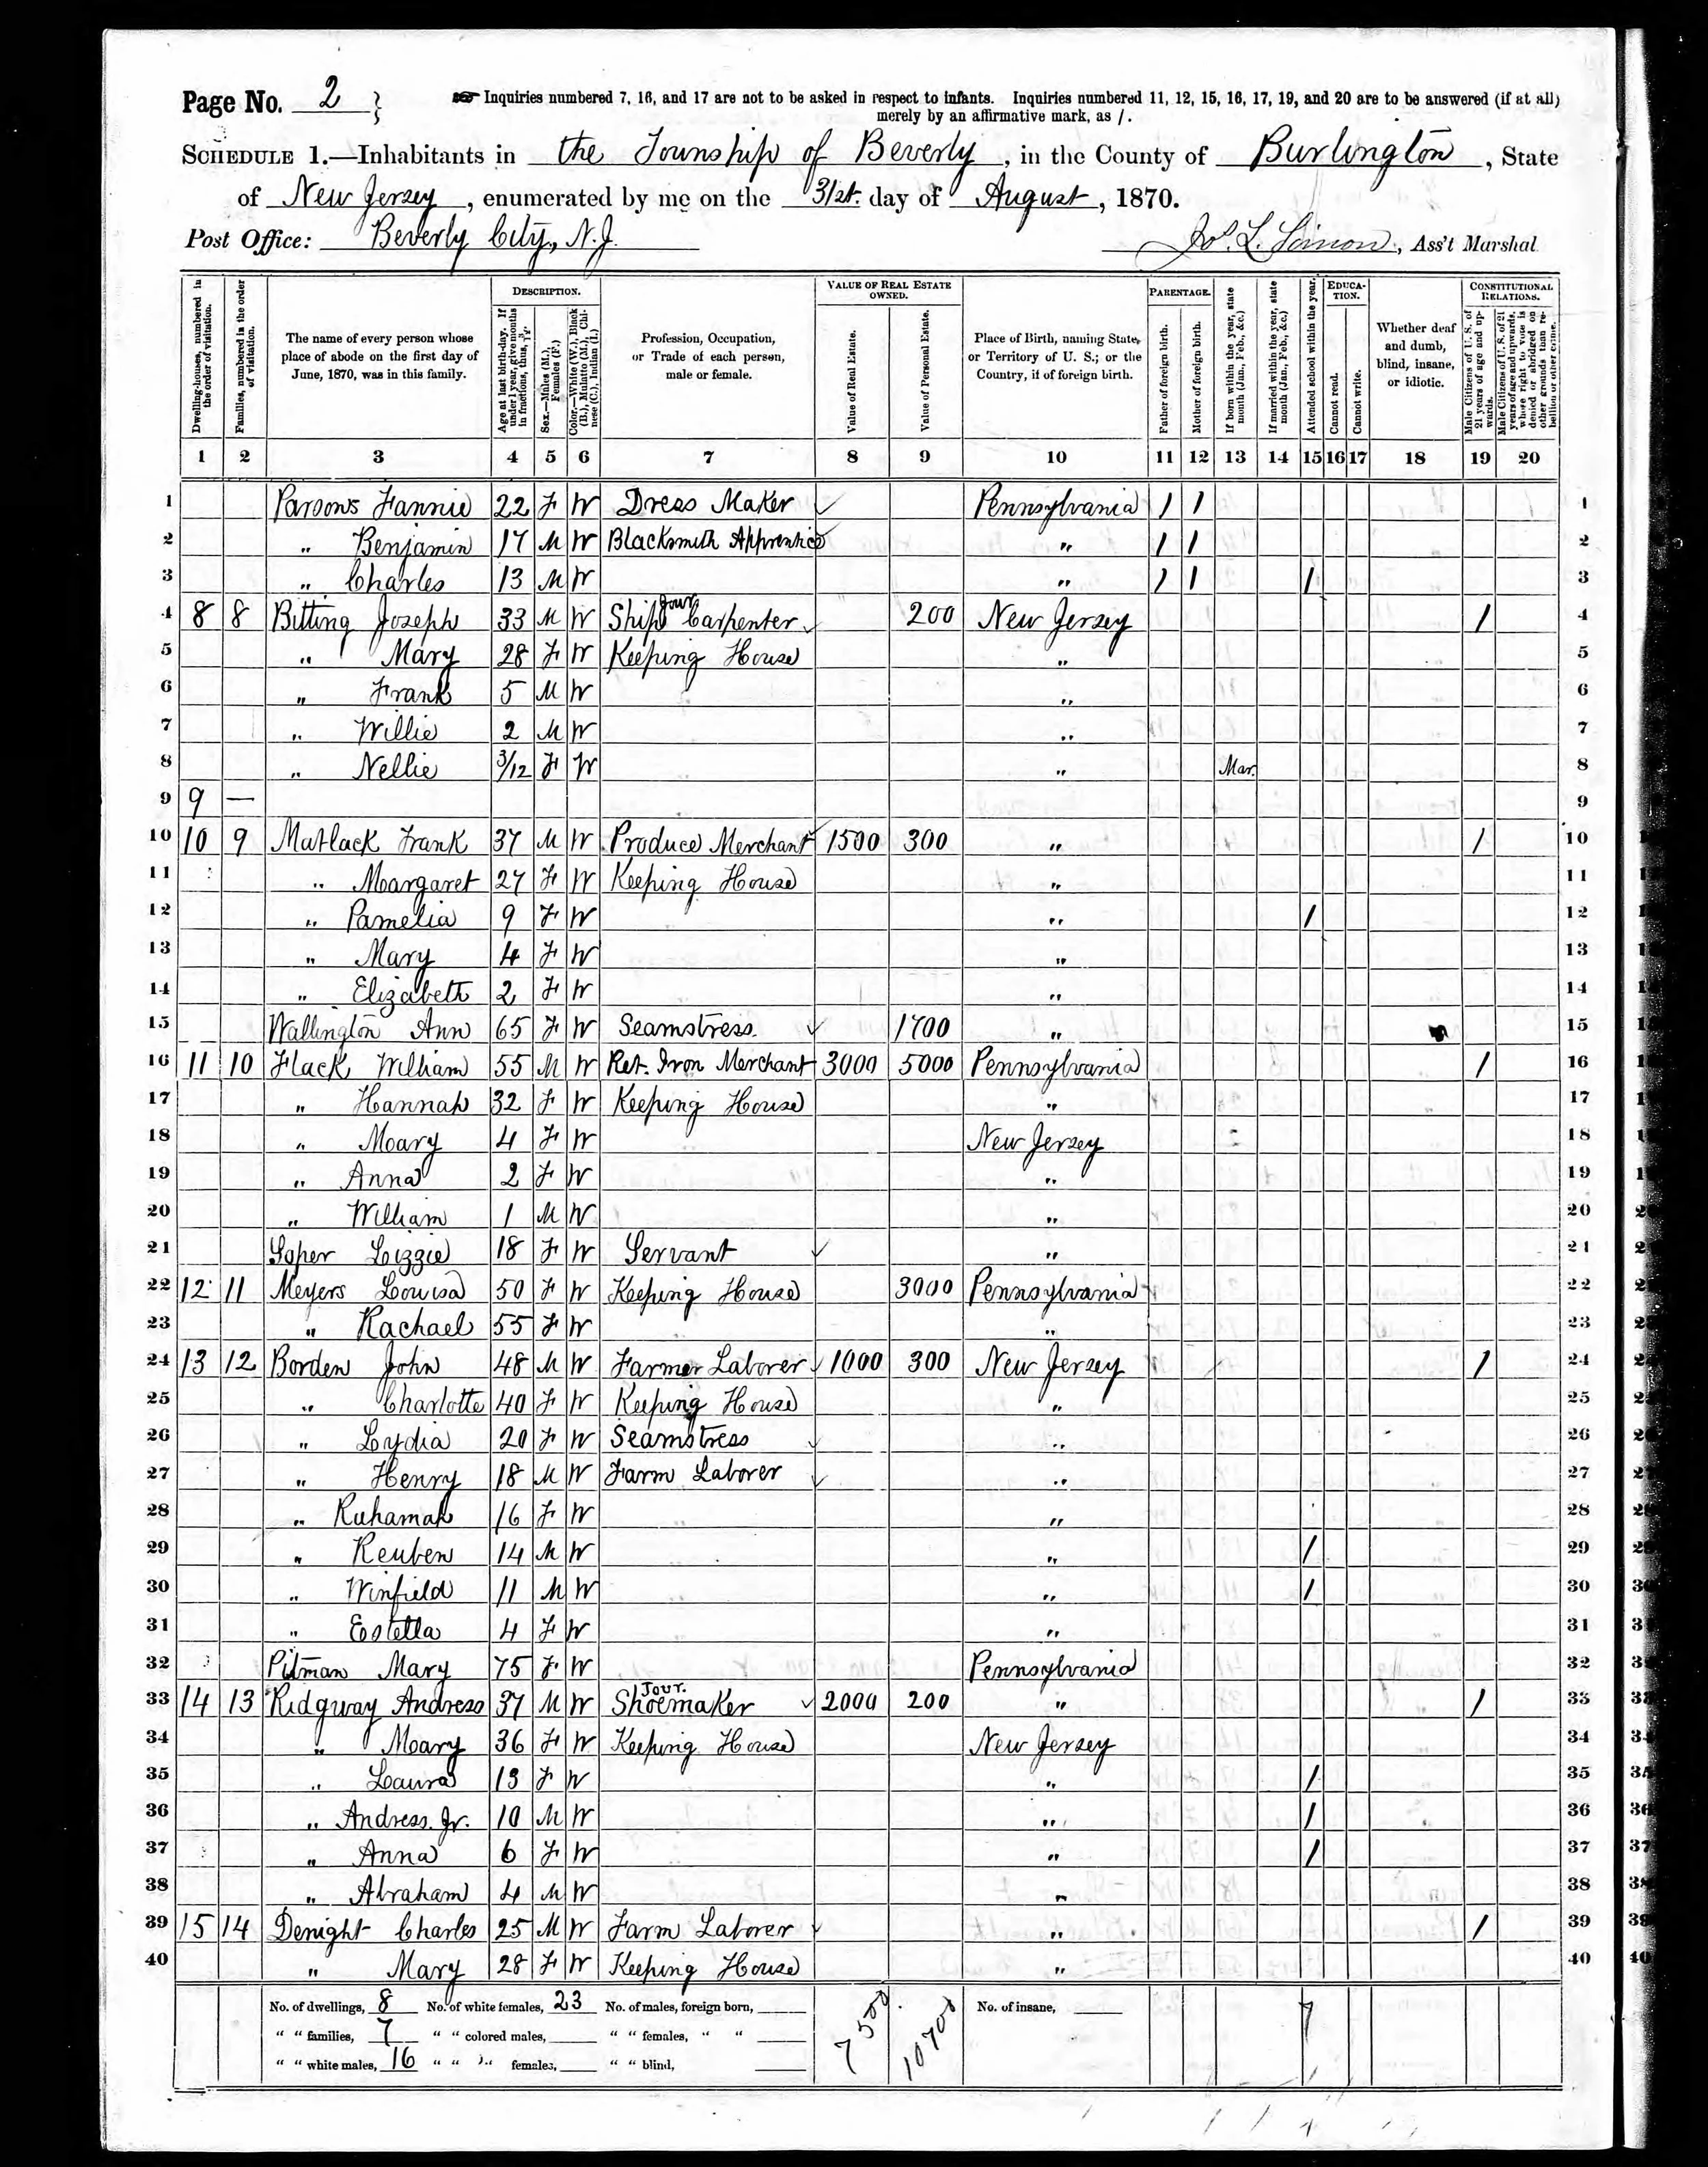 Page No. 2
Inquiries numbered 7, 16, and 17 are not to be asked in respect to infants. Inquiries numbered 11, 12, 15, 16, 17, 19, and 20 are to be answered (if at all)
merely by an affirmative mark, as /.
SCHEDULE 1.—Inhabitants in the Township of Beverly, in the County of Burlington, State
of New Jersey, enumerated by me on the 31st. day of August, 1870.
Post Office: Beverly City, N.J. Jos. L. , Ass't Marshal
Dwelling-houses, numbered in the order of visitation.
Families, numbered in the order of visitation.
The name of every person whose place of abode on the first day of June, 1870, was in this family.
DESCRIPTION.
Age at last birth-day. If under 1 year, give months in fractions, thus, 3/12.
Sex.—Males (M.), Females (F.)
Color.—White (W.), Black (B.), Mulatto (M.), Chinese (C.), Indian (I.)
Profession, Occupation, or Trade of each person, male or female.
VALUE OF REAL ESTATE OWNED.
Value of Real Estate.
Value of Personal Estate.
Place of Birth, naming State or Territory of U. S.; or the Country, if of foreign birth.
PARENTAGE.
Father of foreign birth.
Mother of foreign birth.
If born within the year, state month (Jan., Feb., &c.)
If married within the year, state month (Jan., Feb., &c.)
Attended school within the year.
EDUCATION.
Cannot read.
Cannot write.
Whether deaf and dumb, blind, insane, or idiotic.
CONSTITUTIONAL RELATIONS.
Male Citizens of U. S. of 21 years of age and upwards.
Male Citizens of U. S. of 21 years of age and upwards, whose right to vote is denied or abridged on other grounds than rebellion or other crime.
1 2 3 4 5 6 7 8 9 10 11 12 13 14 15 16 17 18 19 20
1 Parsons Fannie 22 F W Dress Maker Pennsylvania / / 1
2 " Benjamin 17 M W Blacksmith Apprentice " / / 2
3 " Charles 13 M W " / / / 3
4 8 8 Bitting Joseph 33 M W Ship Jour Carpenter 200 New Jersey / 4
5 " Mary 28 F W Keeping House " 5
6 " Frank 5 M W " 6
7 " Willie 2 M W " 7
8 " Nellie 3/12 F W " Mar. 8
9 9 — 9
10 10 9 Matlack Frank 37 M W Produce Merchant 1500 300 " / 10
11 " Margaret 27 F W Keeping House " 11
12 " Pamelia 9 F W " / 12
13 " Mary 4 F W " 13
14 " Elizabeth 2 F W " 14
15 Wallington Ann 65 F W Seamstress. 1700 " 15
16 11 10 Flack William 55 M W Ret. Iron Merchant 3000 5000 Pennsylvania / 16
17 " Hannah 32 F W Keeping House " 17
18 " Mary 4 F W New Jersey 18
19 " Anna 2 F W " 19
20 " William 1 M W " 20
21 Soper Lizzie 18 F W Servant " 21
22 12 11 Meyers Louisa 50 F W Keeping House 3000 Pennsylvania 22
23 " Rachael 55 F W " 23
24 13 12 Borden John 48 M W Farmer Laborer 1000 300 New Jersey / 24
25 " Charlotte 40 F W Keeping House " 25
26 " Lydia 20 F W Seamstress " 26
27 " Henry 18 M W Farm Laborer " 27
28 " Ruhamah 16 F W " 28
29 " Reuben 14 M W " / 29
30 " Winfield 11 M W " / 30
31 " Estella 4 F W " 31
32 Pitman Mary 75 F W Pennsylvania 32
33 14 13 Ridgway Andress 37 M W Jour. Shoemaker 2000 200 " / 33
34 " Mary 36 F W Keeping House New Jersey 34
35 " Laura 13 F W " / 35
36 " Andress. Jr. 10 M W " / 36
37 " Anna 6 F W " / 37
38 " Abraham 4 M W " 38
39 15 14 Denight Charles 25 M W Farm Laborer " / 39
40 " Mary 28 F W Keeping House " 40
No. of dwellings, 8 No. of white females, 23 No. of males, foreign born, 7500 10700 No. of insane, 7
" " families, 7 " " colored males, " " females, " "
" " white males, 16 " " " females, " " blind,